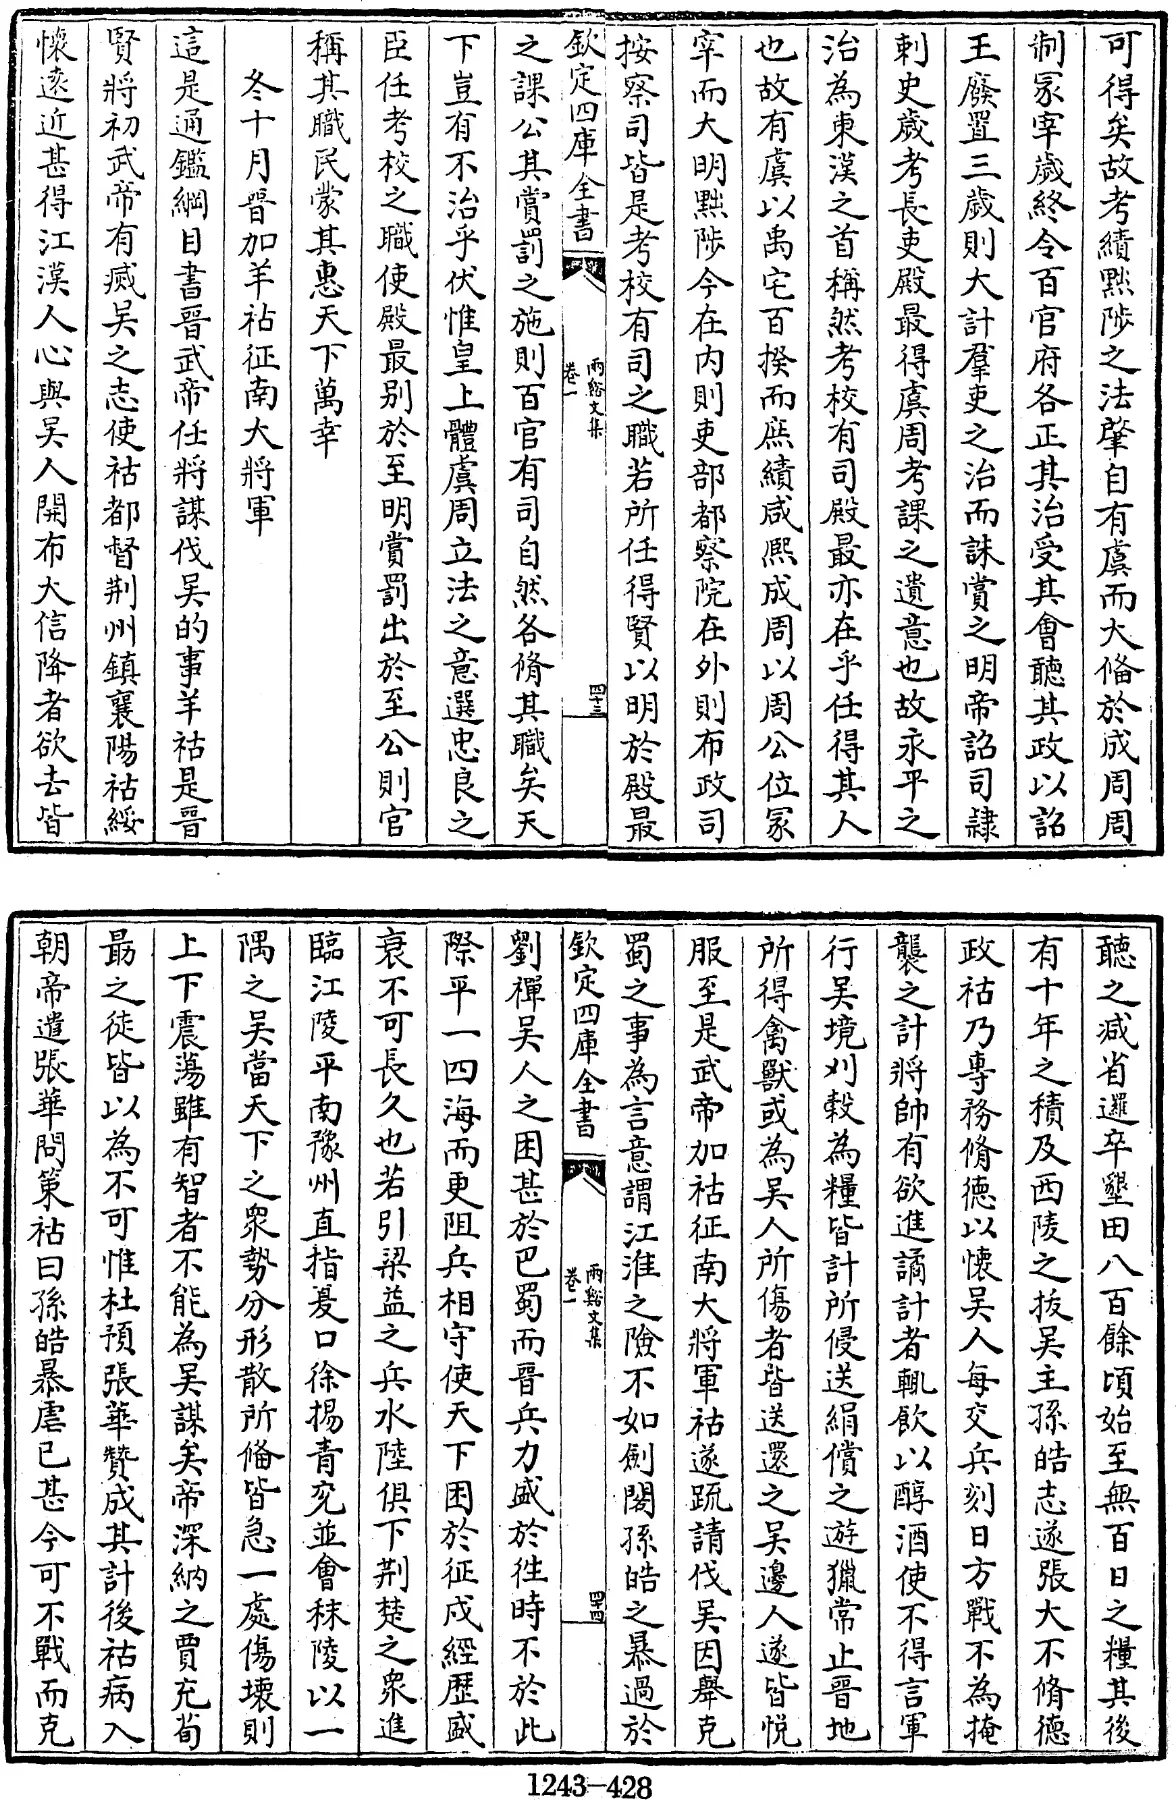 可得矣故考績黜陟之法肇自有虞而大備於成周周
制冢宰歲終令百官府各正其治受其會聽其政以詔
王廢置三歲則大計羣吏之治而誅賞之明帝詔司隸
刺史歲考長吏殿最得虞周考課之遺意也故永平之
治為東漢之首稱然考校有司殿最亦在乎任得其人
也故有虞以禹宅百揆而庶績咸熙成周以周公位冡
宰而大明黜陟今在内則吏部都察院在外則布政司
按察司皆是考校有司之職若所任得賢以明於殿最
欽定四庫全書
兩谿文集
卷一
四十三
之課公其賞罰之施則百官有司自然各脩其職矣天
下豈有不治乎伏惟皇上體虞周立法之意選忠良之
臣任考校之職使殿最别於至明賞罰出於至公則官
稱其職民蒙其惠天下萬幸
冬十月晉加羊祜征南大將軍
這是通鑑綱目書晉武帝任將謀伐吴的事羊祜是晉
賢將初武帝有滅吴之志使祜都督荆州鎮襄陽祜綏
懷遠近甚得江漢人心與吴人開布大信降者欲去皆
聽之减省邏卒墾田八百餘頃始至無百日之糧其後
有十年之積及西陵之拔吴主孫皓志遂張大不脩德
政祜乃專務脩德以懷吴人每交兵刻日方戰不為掩
襲之計將帥有欲進譎計者輒飲以醇酒使不得言軍
行吴境刈穀為糧皆計所侵送絹償之遊獵常止晉地
所得禽獸或為吴人所傷者皆送還之吴邊人遂皆悦
服至是武帝加祜征南大將軍祜遂疏請伐吴因舉克
蜀之事為言意謂江淮之險不如劍閣孫皓之暴過於
欽定四庫全書
兩谿文集
卷一
四十四
劉禪吴人之困甚於巴蜀而晉兵力盛於徃時不於此
際平一四海而更阻兵相守使天下困於征戍經歴盛
衰不可長久也若引梁益之兵水陸俱下荆楚之衆進
臨江陵平南豫州直指夏口徐揚青兖並會秣陵以一
隅之吴當天下之衆勢分形散所備皆急一處傷壞則
上下震蕩雖有智者不能為吴謀矣帝深納之賈充荀
勗之徒皆以為不可惟杜預張華贊成其計後祜病入
朝帝遣張華問策祜曰孫皓暴虐已甚今可不戰而克
1243-428